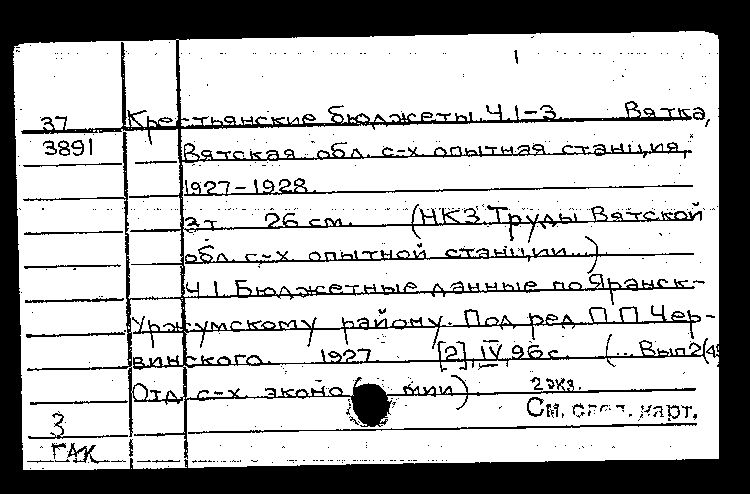 1
37 Крестьянские бюджеты. Ч.1-3. Вятка,
3891 Вятская обл. с-х опытная станция,
1927-1928.
3т 26 см. (НКЗ. Труды Вятской
обл. с-х опытной станции...)
Ч.1. Бюджетные данные по Яранск-
Уржумскому району. Под ред. П.П. Чер-
винского. 1927. [2], IV, 96 с. (... Вып 2(49
Отд с-х. эконо мии). 2 экз.
З См. след. карт.
ГАК